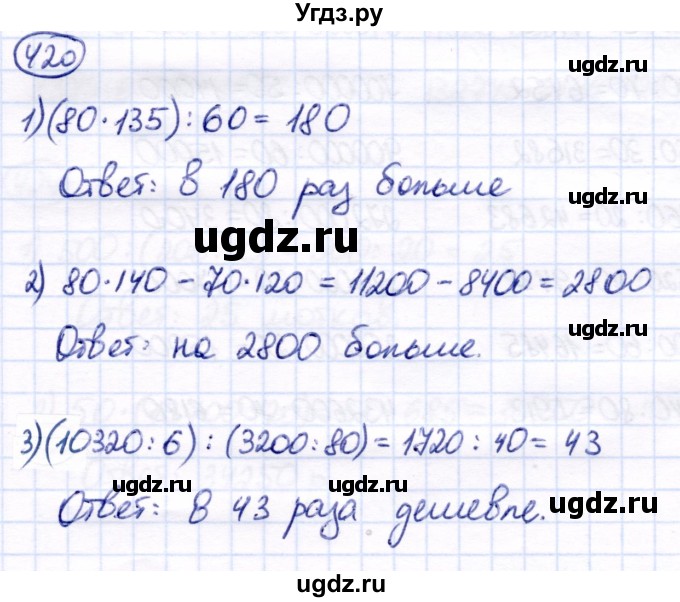 Угдз.ру
420
ugdz.ru
1) (80·135) : 60 = 180
ugdz.ru
Ответ: в 180 раз больше
ugdz.ru
ugdz.ru
2) 80·140 – 70·120 = 11200 – 8400 = 2800
ugdz.ru
Ответ: на 2800 больше.
3) (10320 : 6) : (3200 : 80) = 1720 : 40 = 43
ugdz.ru ugdz.ru
ugdz.ru
Ответ: в 43 раза дешевле.
ugdz.ru